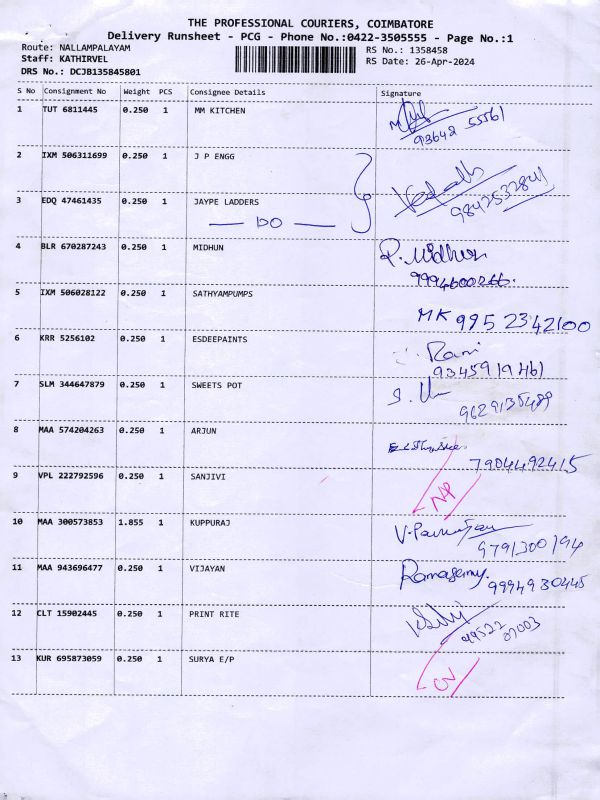 THE PROFESSIONAL COURIERS, COIMBATORE
Delivery Runsheet - PCG - Phone No.:0422-3505555 - Page No.:1
Route: NALLAMPALAYAM RS No.: 1358458
Staff: KATHIRVEL RS Date: 26-Apr-2024
DRS No.: DCJB135845801
S No Consignment No Weight PCS Consignee Details Signature
1 TUT 6811445 0.250 1 MM KITCHEN
93642 55561
2 IXM 506311699 0.250 1 J P ENGG
3 EDQ 47461435 0.250 1 JAYPE LADDERS
DO
4 BLR 670287243 0.250 1 MIDHUN P. Midhun
9994600266.
5 IXM 506028122 0.250 1 SATHYAMPUMPS
MK 995 2342100
6 KRR 5256102 0.250 1 ESDEEPAINTS Rani
9345919461
7 SLM 344647879 0.250 1 SWEETS POT
9629135489
8 MAA 574204263 0.250 1 ARJUN
7904492415
9 VPL 222792596 0.250 1 SANJIVI NP
10 MAA 300573853 1.855 1 KUPPURAJ
9791300194
11 MAA 943696477 0.250 1 VIJAYAN Ramasamy.
9994930445
12 CLT 15902445 0.250 1 PRINT RITE
99522 07003
13 KUR 695873059 0.250 1 SURYA E/P